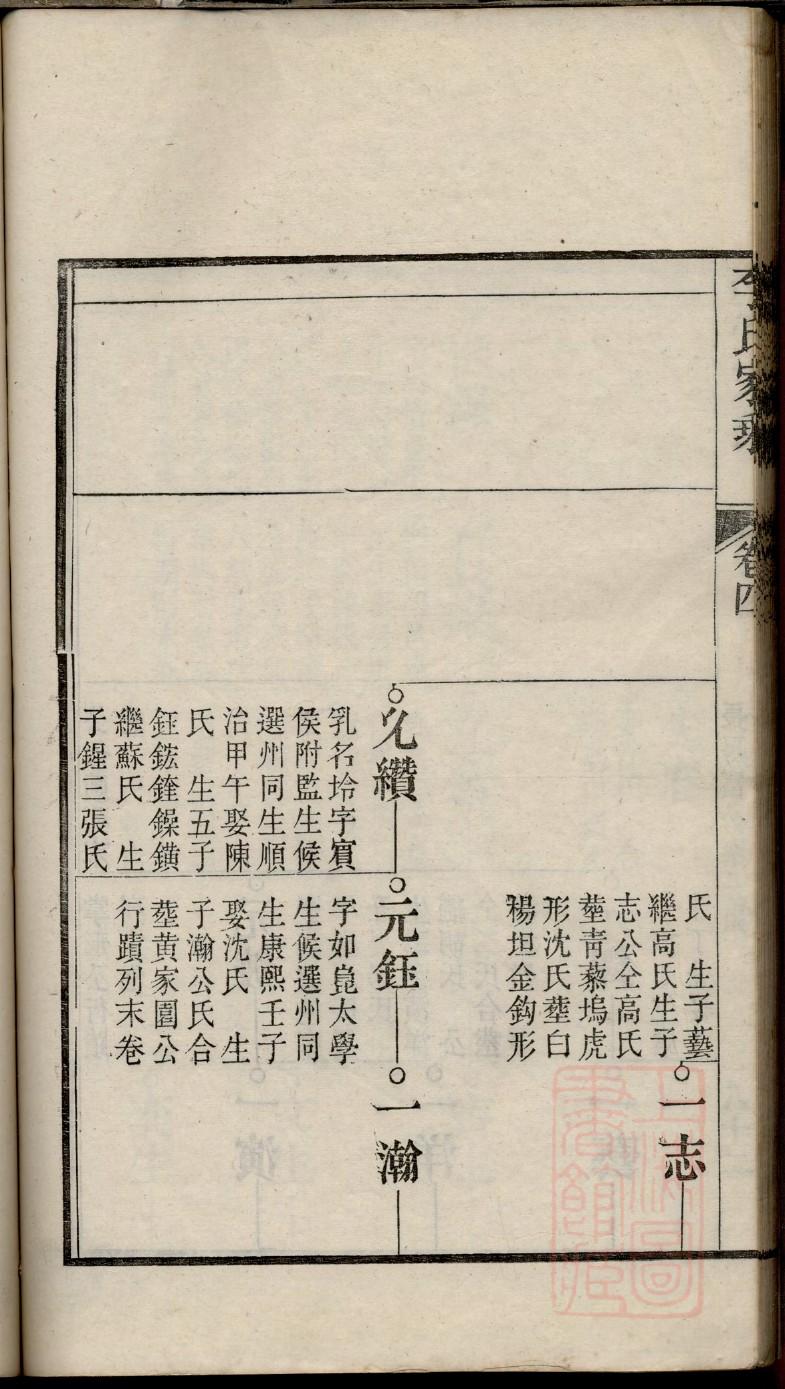 李氏家乘
卷四
氏　生子藝
繼高氏生子
志公仝高氏
塟靑藜塢虎
形沈氏塟白
楊坦金鈎形
一志
允纘
乳名坽字賔
侯附監生候
選州同生順
治甲午娶陳
氏　生五子
鈺鋐鍷鐰鐄
繼蘇氏　生
子鍟三張氏
元鈺
字如崑太學
生候選州同
生康熙壬子
娶沈氏　生
子瀚公氏合
塟黄家園公
行蹟列末卷
一瀚